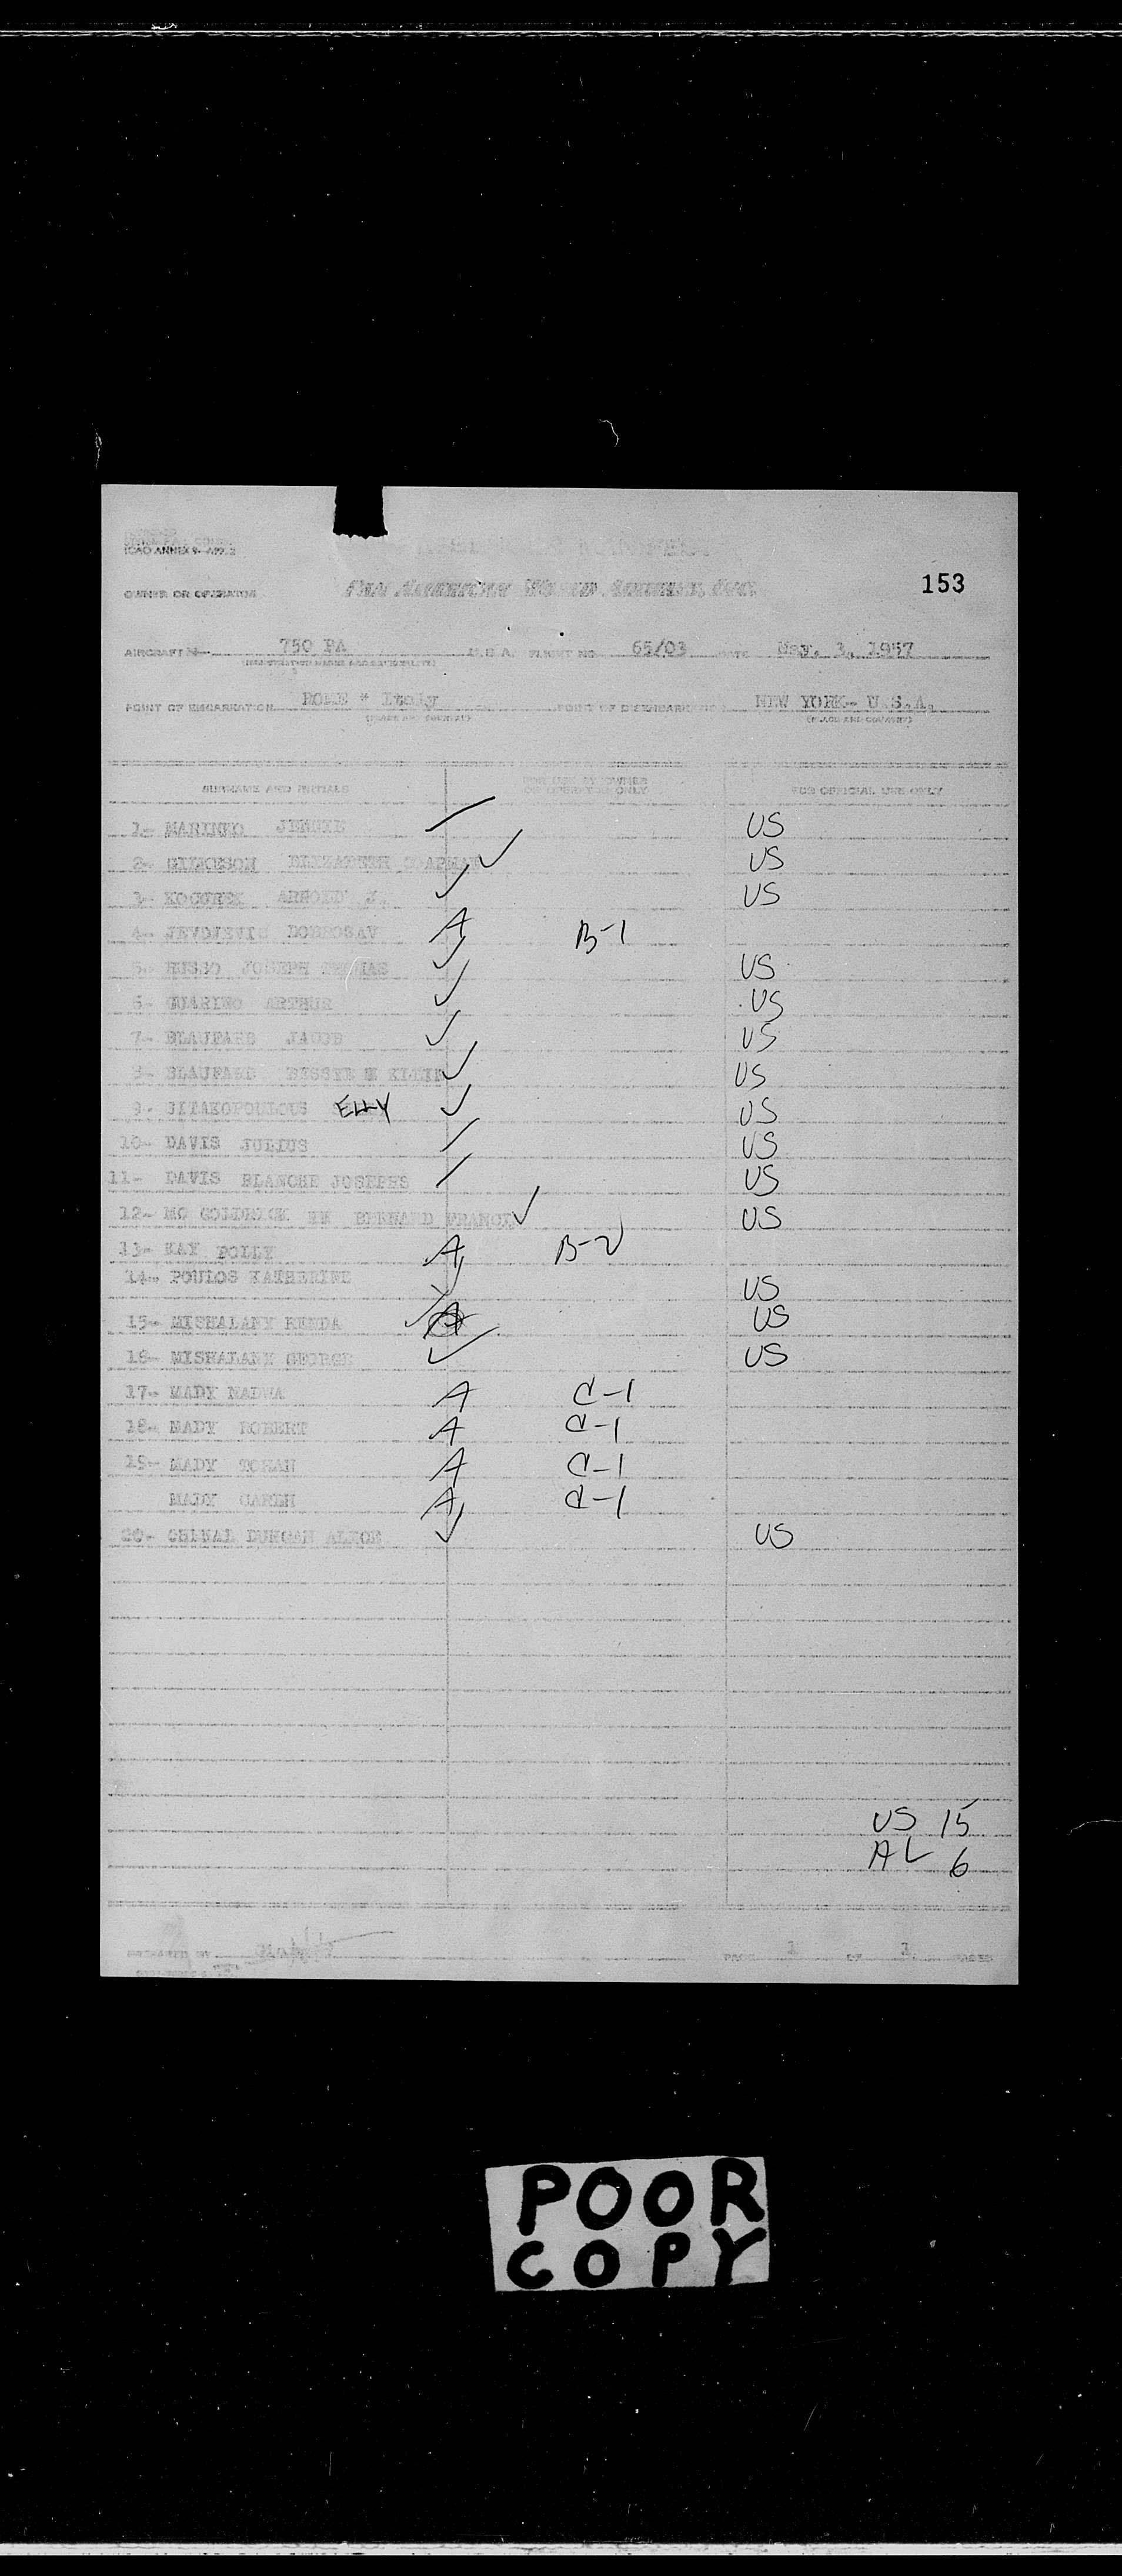 ICAO ANNEX 9- APP. 2
153
OWNER OR OPERATOR PAN AMERICAN WORLD AIRWAYS, INC.
AIRCRAFT N- 750 PA U.S.A. FLIGHT NO 65/03 DATE May. 3, 1957
POINT OF EMBARKATION ROME * Italy POINT OF DISEMBARKATION NEW YORK- U.S.A.
(PLACE AND COUNTRY) (PLACE AND COUNTRY)
SURNAME AND INITIALS FOR USE BY OWNER OR OPERATOR ONLY FOR OFFICIAL USE ONLY
1- MARINEO JENNIE US
2- ELIZABETH CHAPMAN ✓ US
3- ARNOLD J. ✓ US
4- JEVDJEVIC DOBROSAV A B-1
5- RUSSO JOSEPH THOMAS ✓ US
6- GUARINO ARTHUR ✓ US
7- BLAUFARB JACOB ✓ US
8- BLAUFARB BESSIE KLEIN ✓ US
9- SITAKOPOULOUS ELLY ✓ US
10- DAVIS JULIUS US
11- DAVIS BLANCHE JOSEPHS US
12- MC GOLDRICK BERNARD FRANCIS ✓ US
13- KAY POLLY A B-2
14- POULOS KATHERINE ✓ US
15- MISHALANY RENDA ✓ A US
16- MISHALANY GEORGE ✓ US
17- MADY NADWA A C-1
18- MADY ROBERT A C-1
19- MADY A C-1
MADY A C-1
20- DUNCAN ✓ US
US 15
AL 6
PREPARED BY PAGE 1 OF 1 PAGES
POOR
COPY